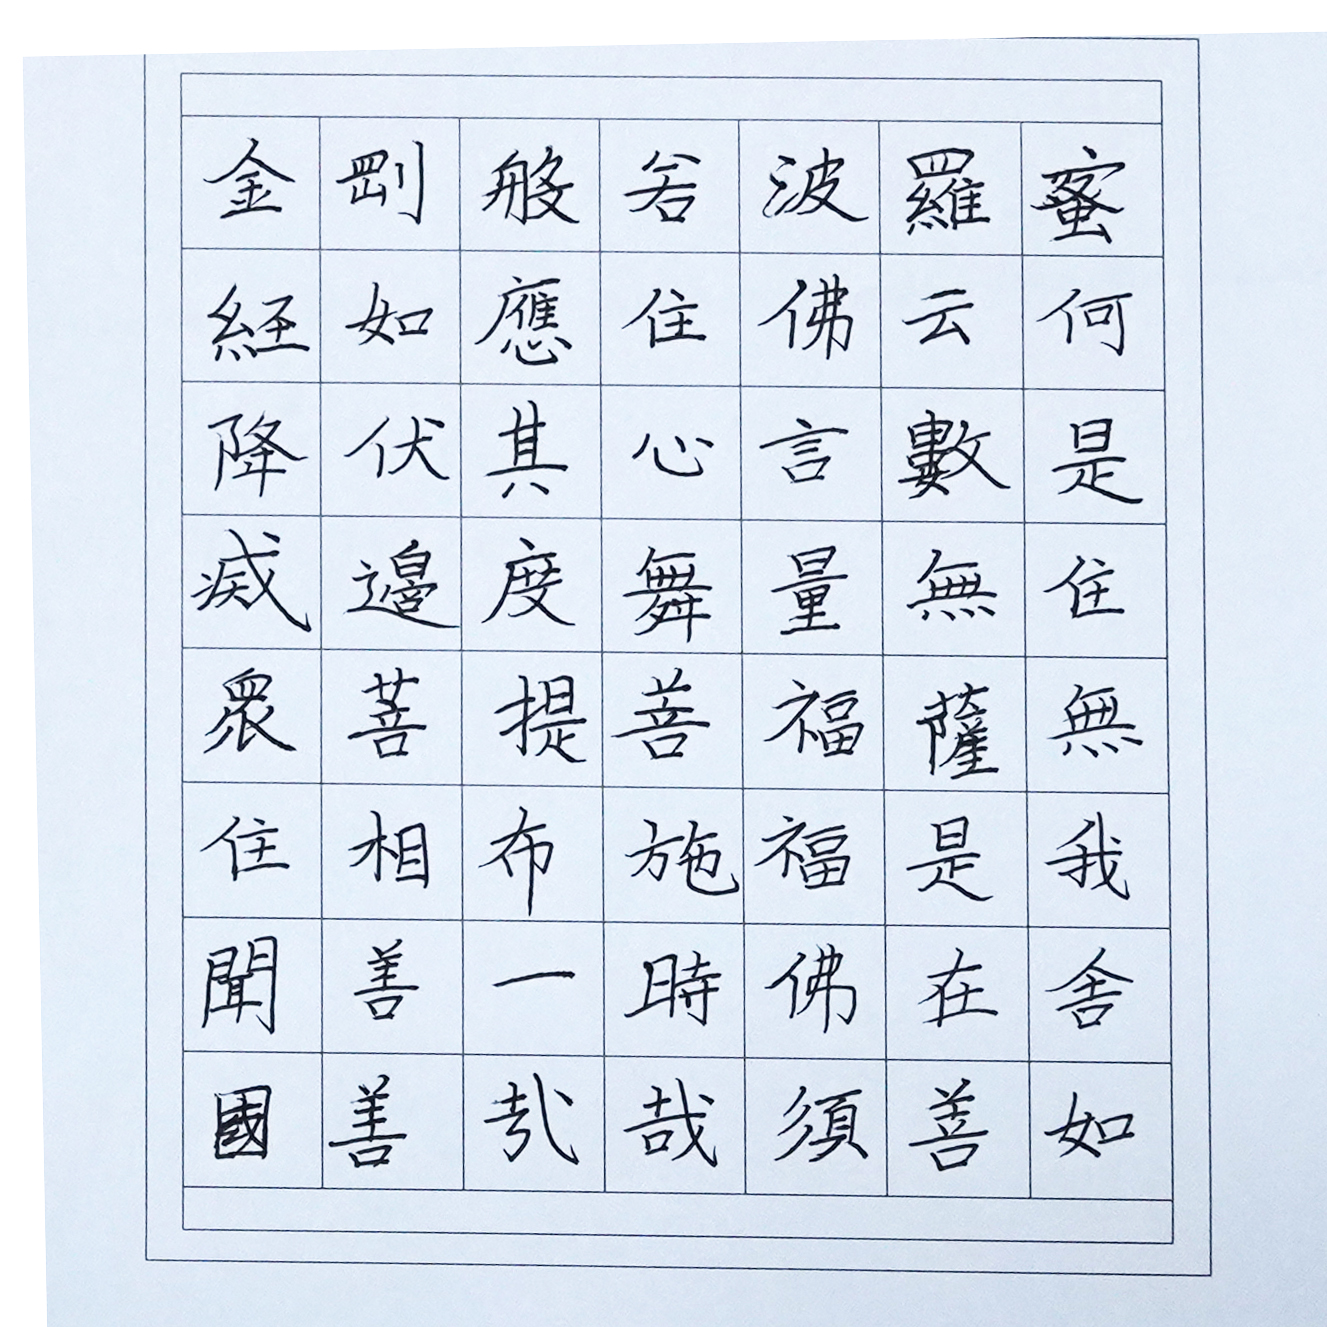 金剛般若波羅蜜
経如應住佛云何
降伏其心言數是
滅邊度舞量無住
眾菩提菩福薩無
住相布施福是我
聞善一時佛在舍
國善哉須菩如